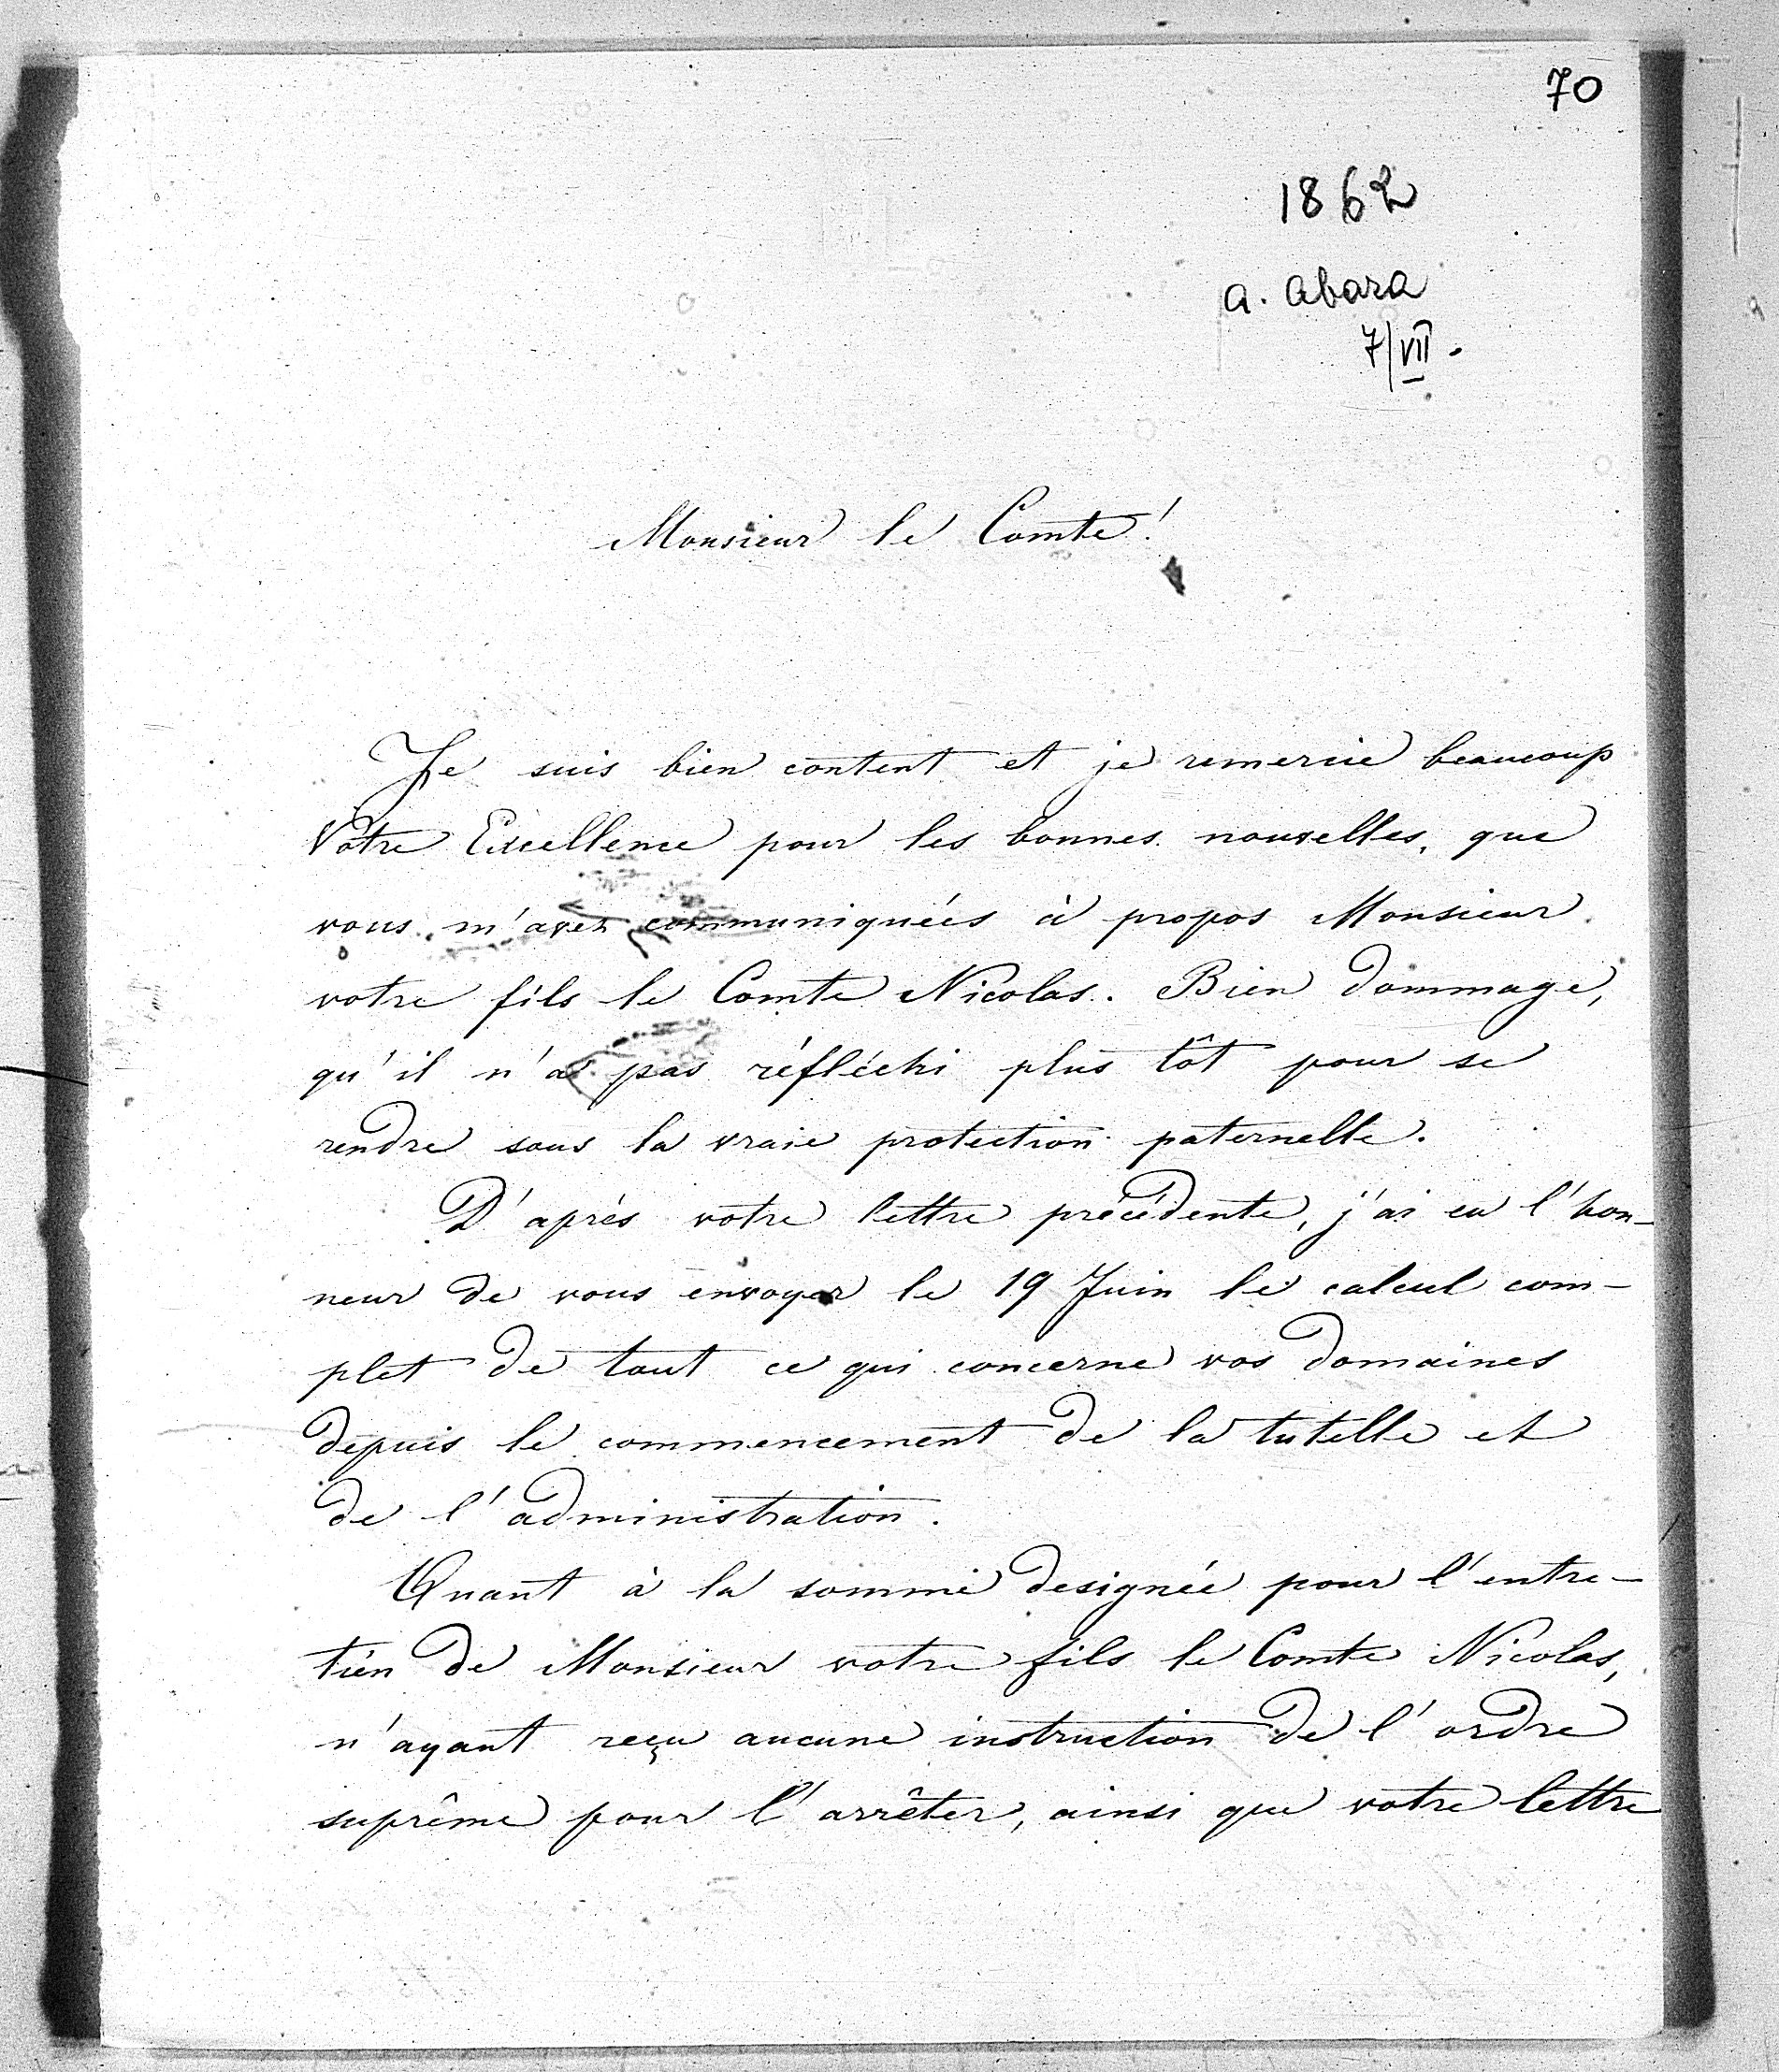 70
1862
a. Abaza
7/VII.
Monsieur le Comte!
Je suis bien content et je remercie beaucoup
Votre Excellence pour les bonnes nouvelles, que
vous m'avez communiquées à propos Monsieur
votre fils le Comte Nicolas. Bien dommage,
qu'il n'a pas réfléchi plus tôt pour se
rendre sous la vraie protection paternelle.
D'après votre lettre précédente, j'ai eu l'hon-
neur de vous envoyer le 19 Juin le calcul com-
plet de tout ce qui concerne vos domaines
depuis le commencement de la tutelle et
de l'administration.
Quant à la somme designée pour l'entre-
tien de Monsieur votre fils le Comte Nicolas,
n'ayant reçu aucune instruction de l'ordre
suprême pour l'arrêter, ainsi que votre lettre